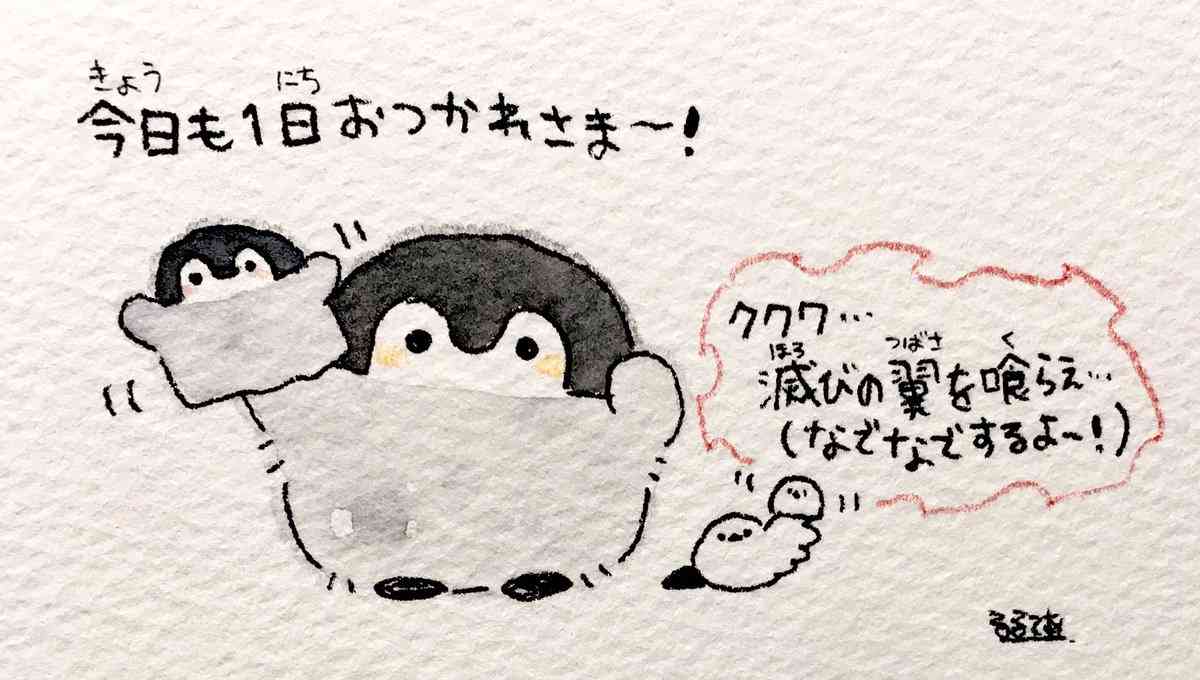 きょう にち
今日も1日おつかれさま〜!
ククク…
ほろ つばさ く
滅びの翼を喰らえ…
(なでなでするよ〜!)
るるてあ